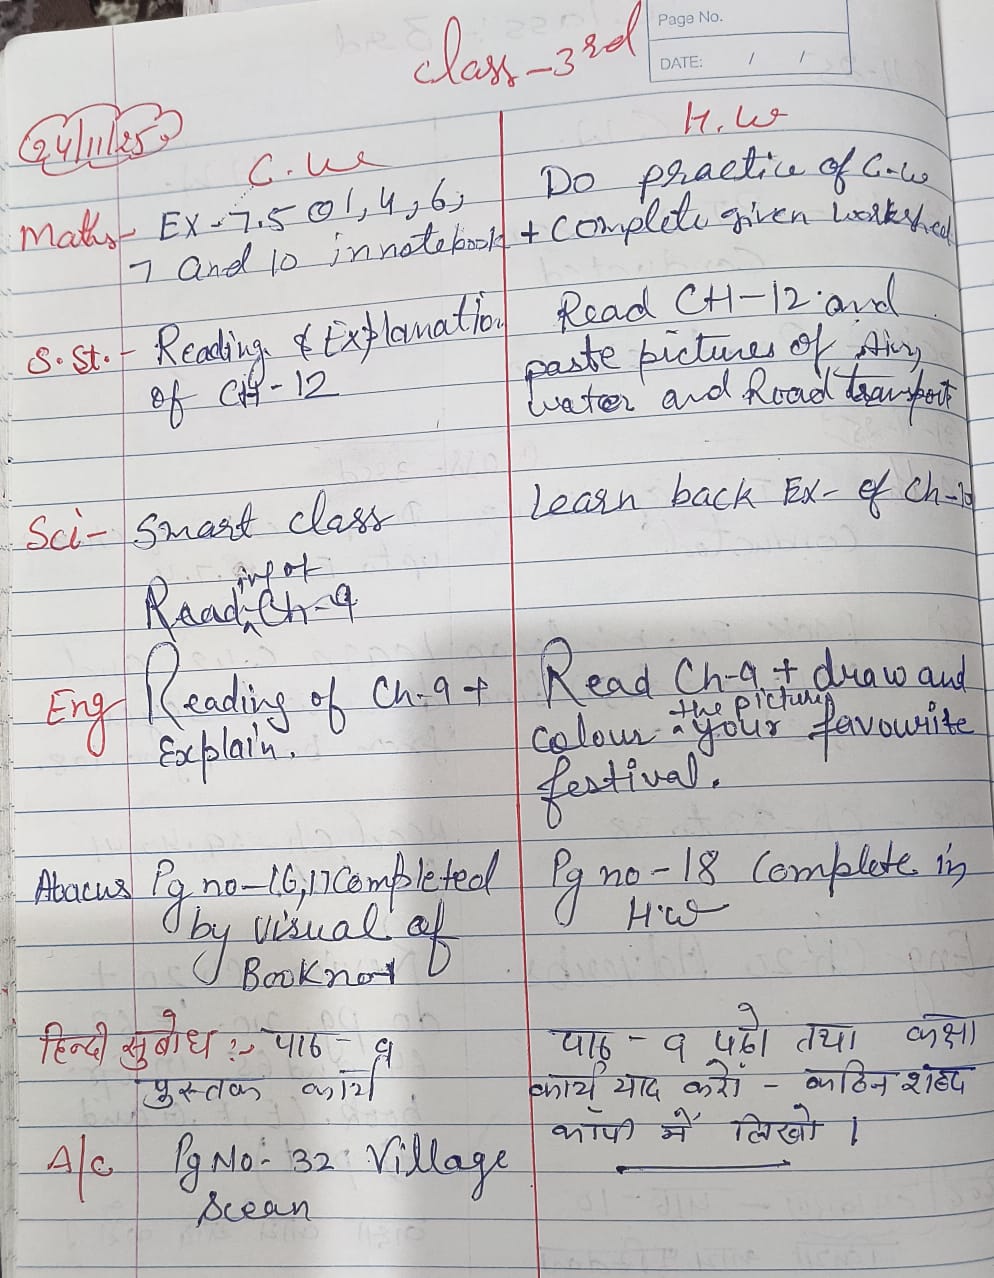 Page No.
DATE: / /
Class-3rd
24/11/25
C.W
H.W
Maths- Ex-7.5 Q1,4,6,
7 and 10 in notebook
Do practice of C.W
+ complete given worksheet
S.St.- Reading & Explanation
of CH-12
Read CH-12 and
paste pictures of Air,
water and Road transport
Sci- Smart class
Reading of Ch-9
Learn back Ex- of Ch-10
Eng Reading of Ch-9 +
Explain.
Read Ch-9 + draw and
colour the picture your favourite
festival.
Abacus Pg no-16,17 Completed
by visual of
Book no-1
Pg no-18 Complete in
H.W
हिन्दी सुबोध :- पाठ - ९
पुस्तक कार्य
पाठ - ९ पढ़ो तथा कक्षा
कार्य याद करो - कठिन शब्द
कॉपी में लिखो ।
A/c Pg No- 32 Village
Scean